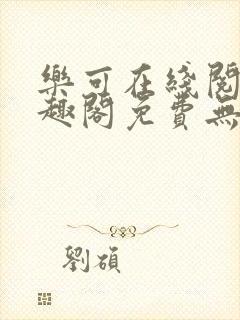 樂可在綫閱
趣閣免費無
劉碩